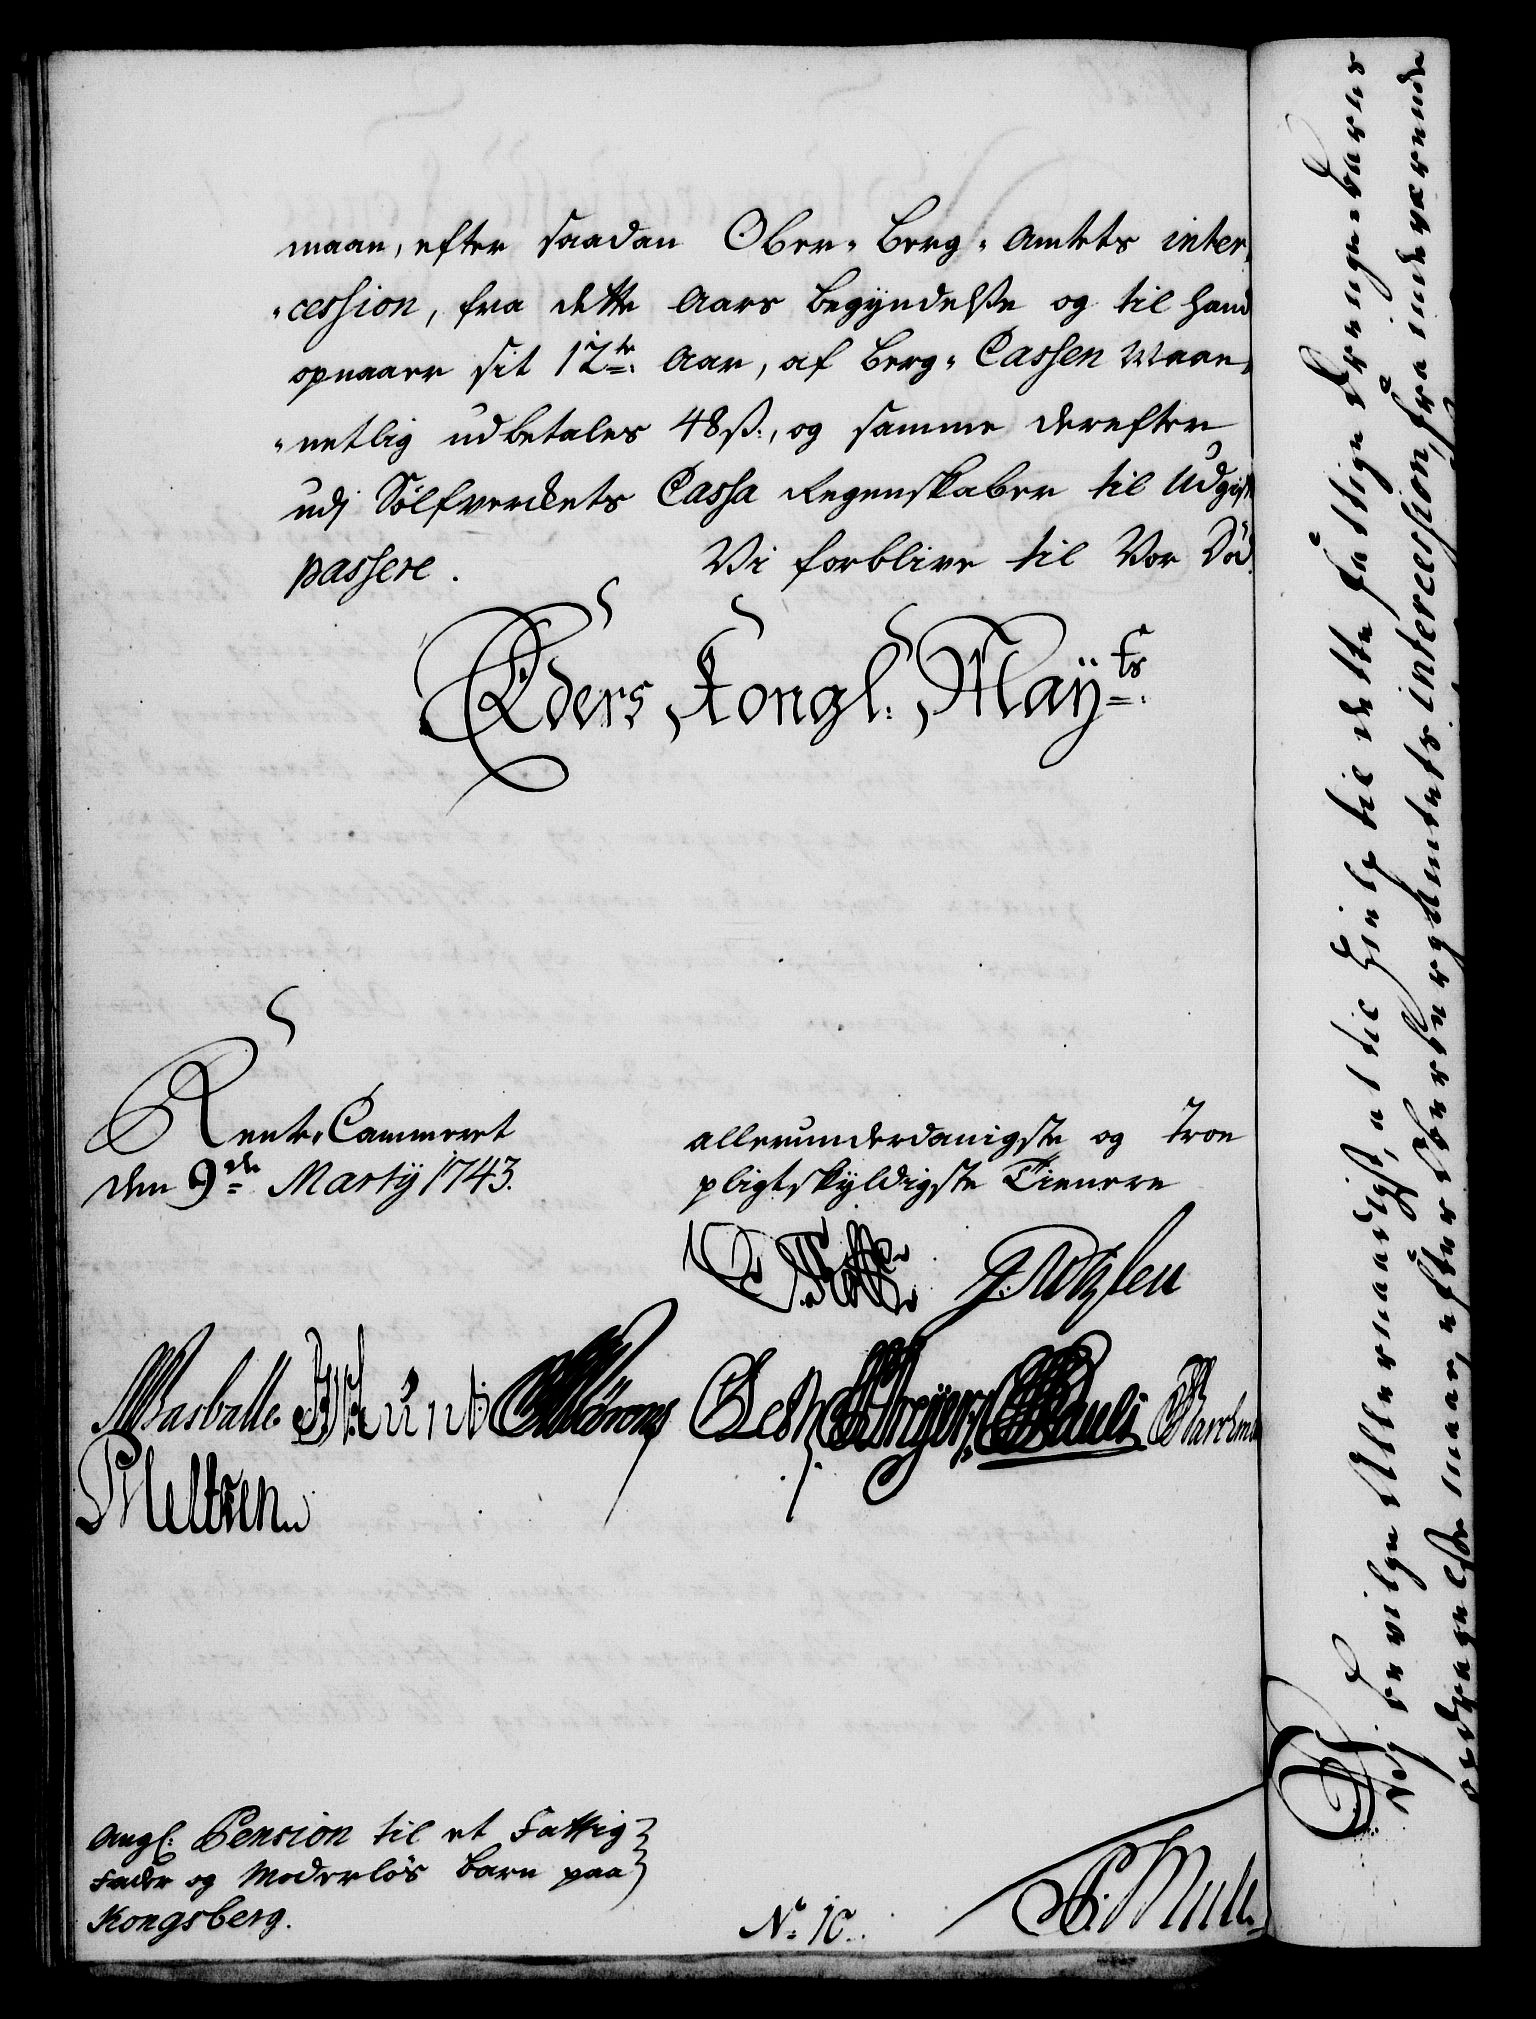 maae, efter saadan Ober-Berg-Amtets inter-
-cession, fra dette Aars Begyndelße og til hand
opnaaer sit 12te Aar, af Berg-Cassen Maae-
-netlig udbetales 48 ß:, og samme derefter
udj Sølfverckets Cassa Regenskaber til Udgift
passere. Vi forblive til Vor Død
Eders Kongl: Mayts:
Rente-Cammeret
den 9de Martij 1743.
allerunderdanigste og Troe
pligtskyldigste Tienere
Wasballe
Pauli
PMeltzen
Angl: Pension til et Fattig
Fader og Moderløs Barn paa
Kongsberg.
No 10.
Vj bevilge Allernaadigst, at til Hielp til dette fattige Drengebarns
opdragelße maae, efter OberbergAmtets intercession, fra indeværende